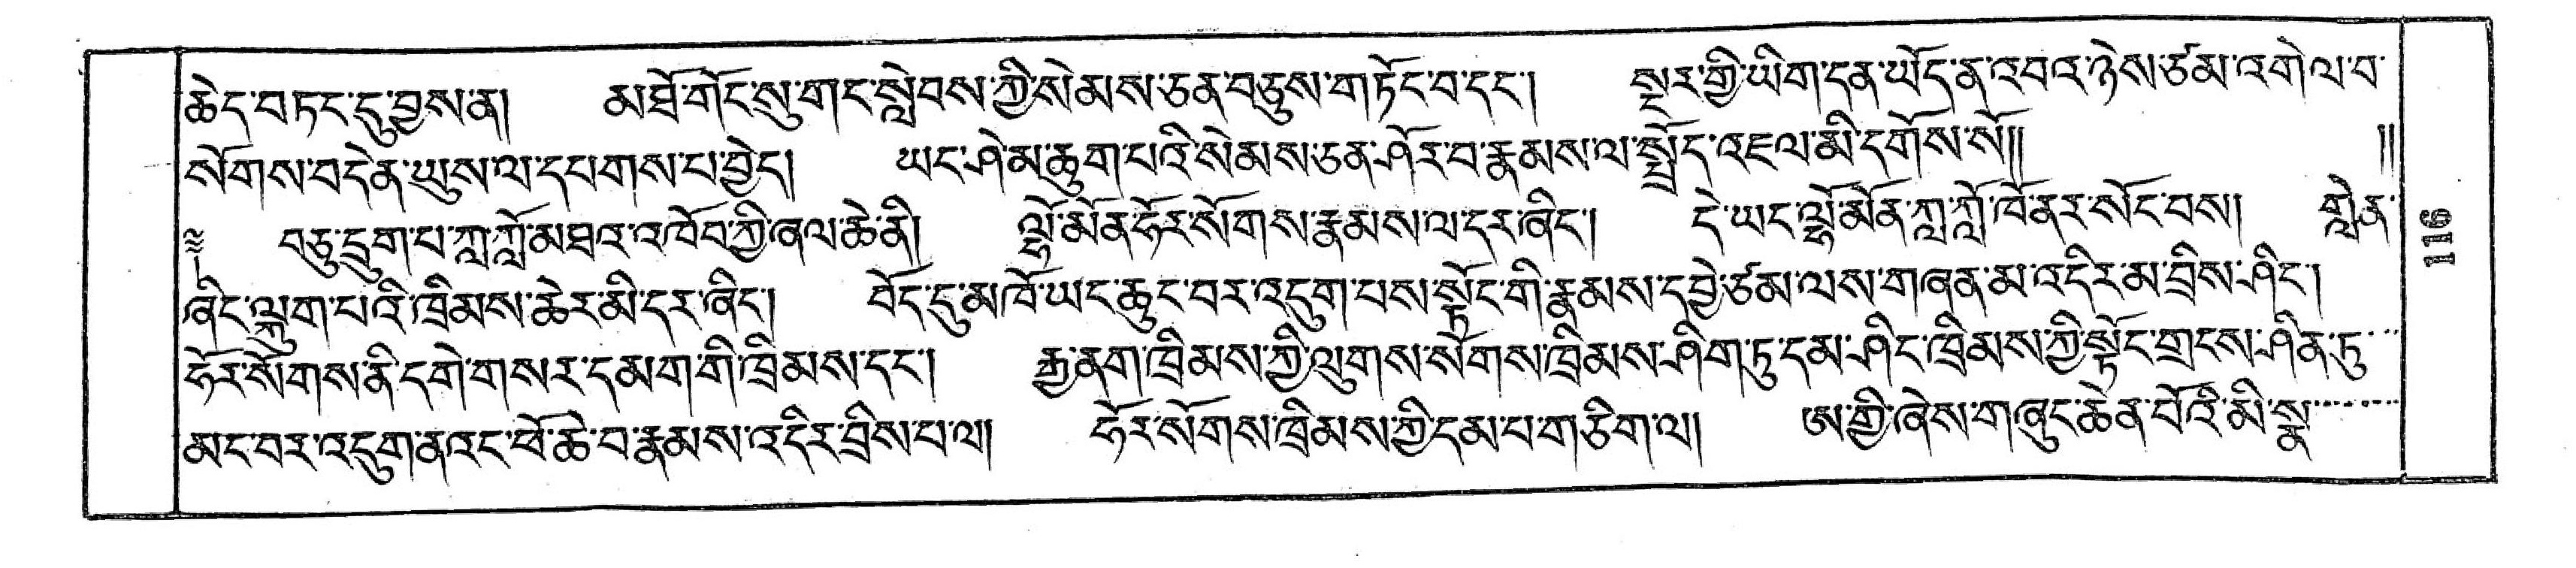 ཆེད་བཏང་དུ་བྱས་ན། མཐོ་གོང་སུ་གང་སླེབས་ཀྱི་སེམས་ཅན་བཅུས་གཏོང་བ་དང་། སྔར་གྱི་ཡིག་དན་ཡོད་ན་འབའ་ཉེས་ཙམ་འགེལ་བ་
སོགས་བདེན་ཡུས་ལ་དཔགས་པ་བྱེད། ཡང་ཤེམ་ཆུག་པའི་སེམས་ཅན་ཤོར་བ་རྣམས་ལ་སྤྲོད་འཇལ་མི་དགོས་སོ།། །།
༈ བཅུ་དྲུག་པ་ཀླ་ཀློ་མཐའ་འཁོབ་ཀྱི་ཞལ་ཆེ་ནི། ལྷོ་མོན་ཧོར་སོགས་རྣམས་ལ་དར་ཞིང་། དེ་ཡང་ལྷོ་མོན་ཀླ་ཀློ་ཁོ་ནར་སོང་བས། གླེན་
ཞིང་ལྐུག་པའི་ཁྲིམས་ཆེར་མི་དར་ཞིང་། བོད་དུ་མཁོ་ཡང་ཆུང་བར་འདུག་པས་སྟོང་གི་རྣམས་དབྱེ་ཙམ་ལས་གཞན་མ་འདིར་མ་བྲིས་ཤིང་།
ཧོར་སོགས་ནི་དགེ་གསར་དམག་གི་ཁྲིམས་དང་། རྒྱ་ནག་ཁྲིམས་ཀྱི་ལུགས་སོགས་ཁྲིམས་ཤིག་ཏུ་དམ་ཤིང་ཁྲིམས་ཀྱི་སྟོང་གྲངས་ཤིན་ཏུ་
མང་བར་འདུག་ནའང་ཕོ་ཆེ་བ་རྣམས་འདིར་བྲིས་པ་ལ། ཧོར་སོགས་ཁྲིམས་ཀྱི་དམ་པ་གཅིག་ལ། ཨ་གྱི་ཞེས་གཞུང་ཆེན་པོའི་མི་སྣ
911